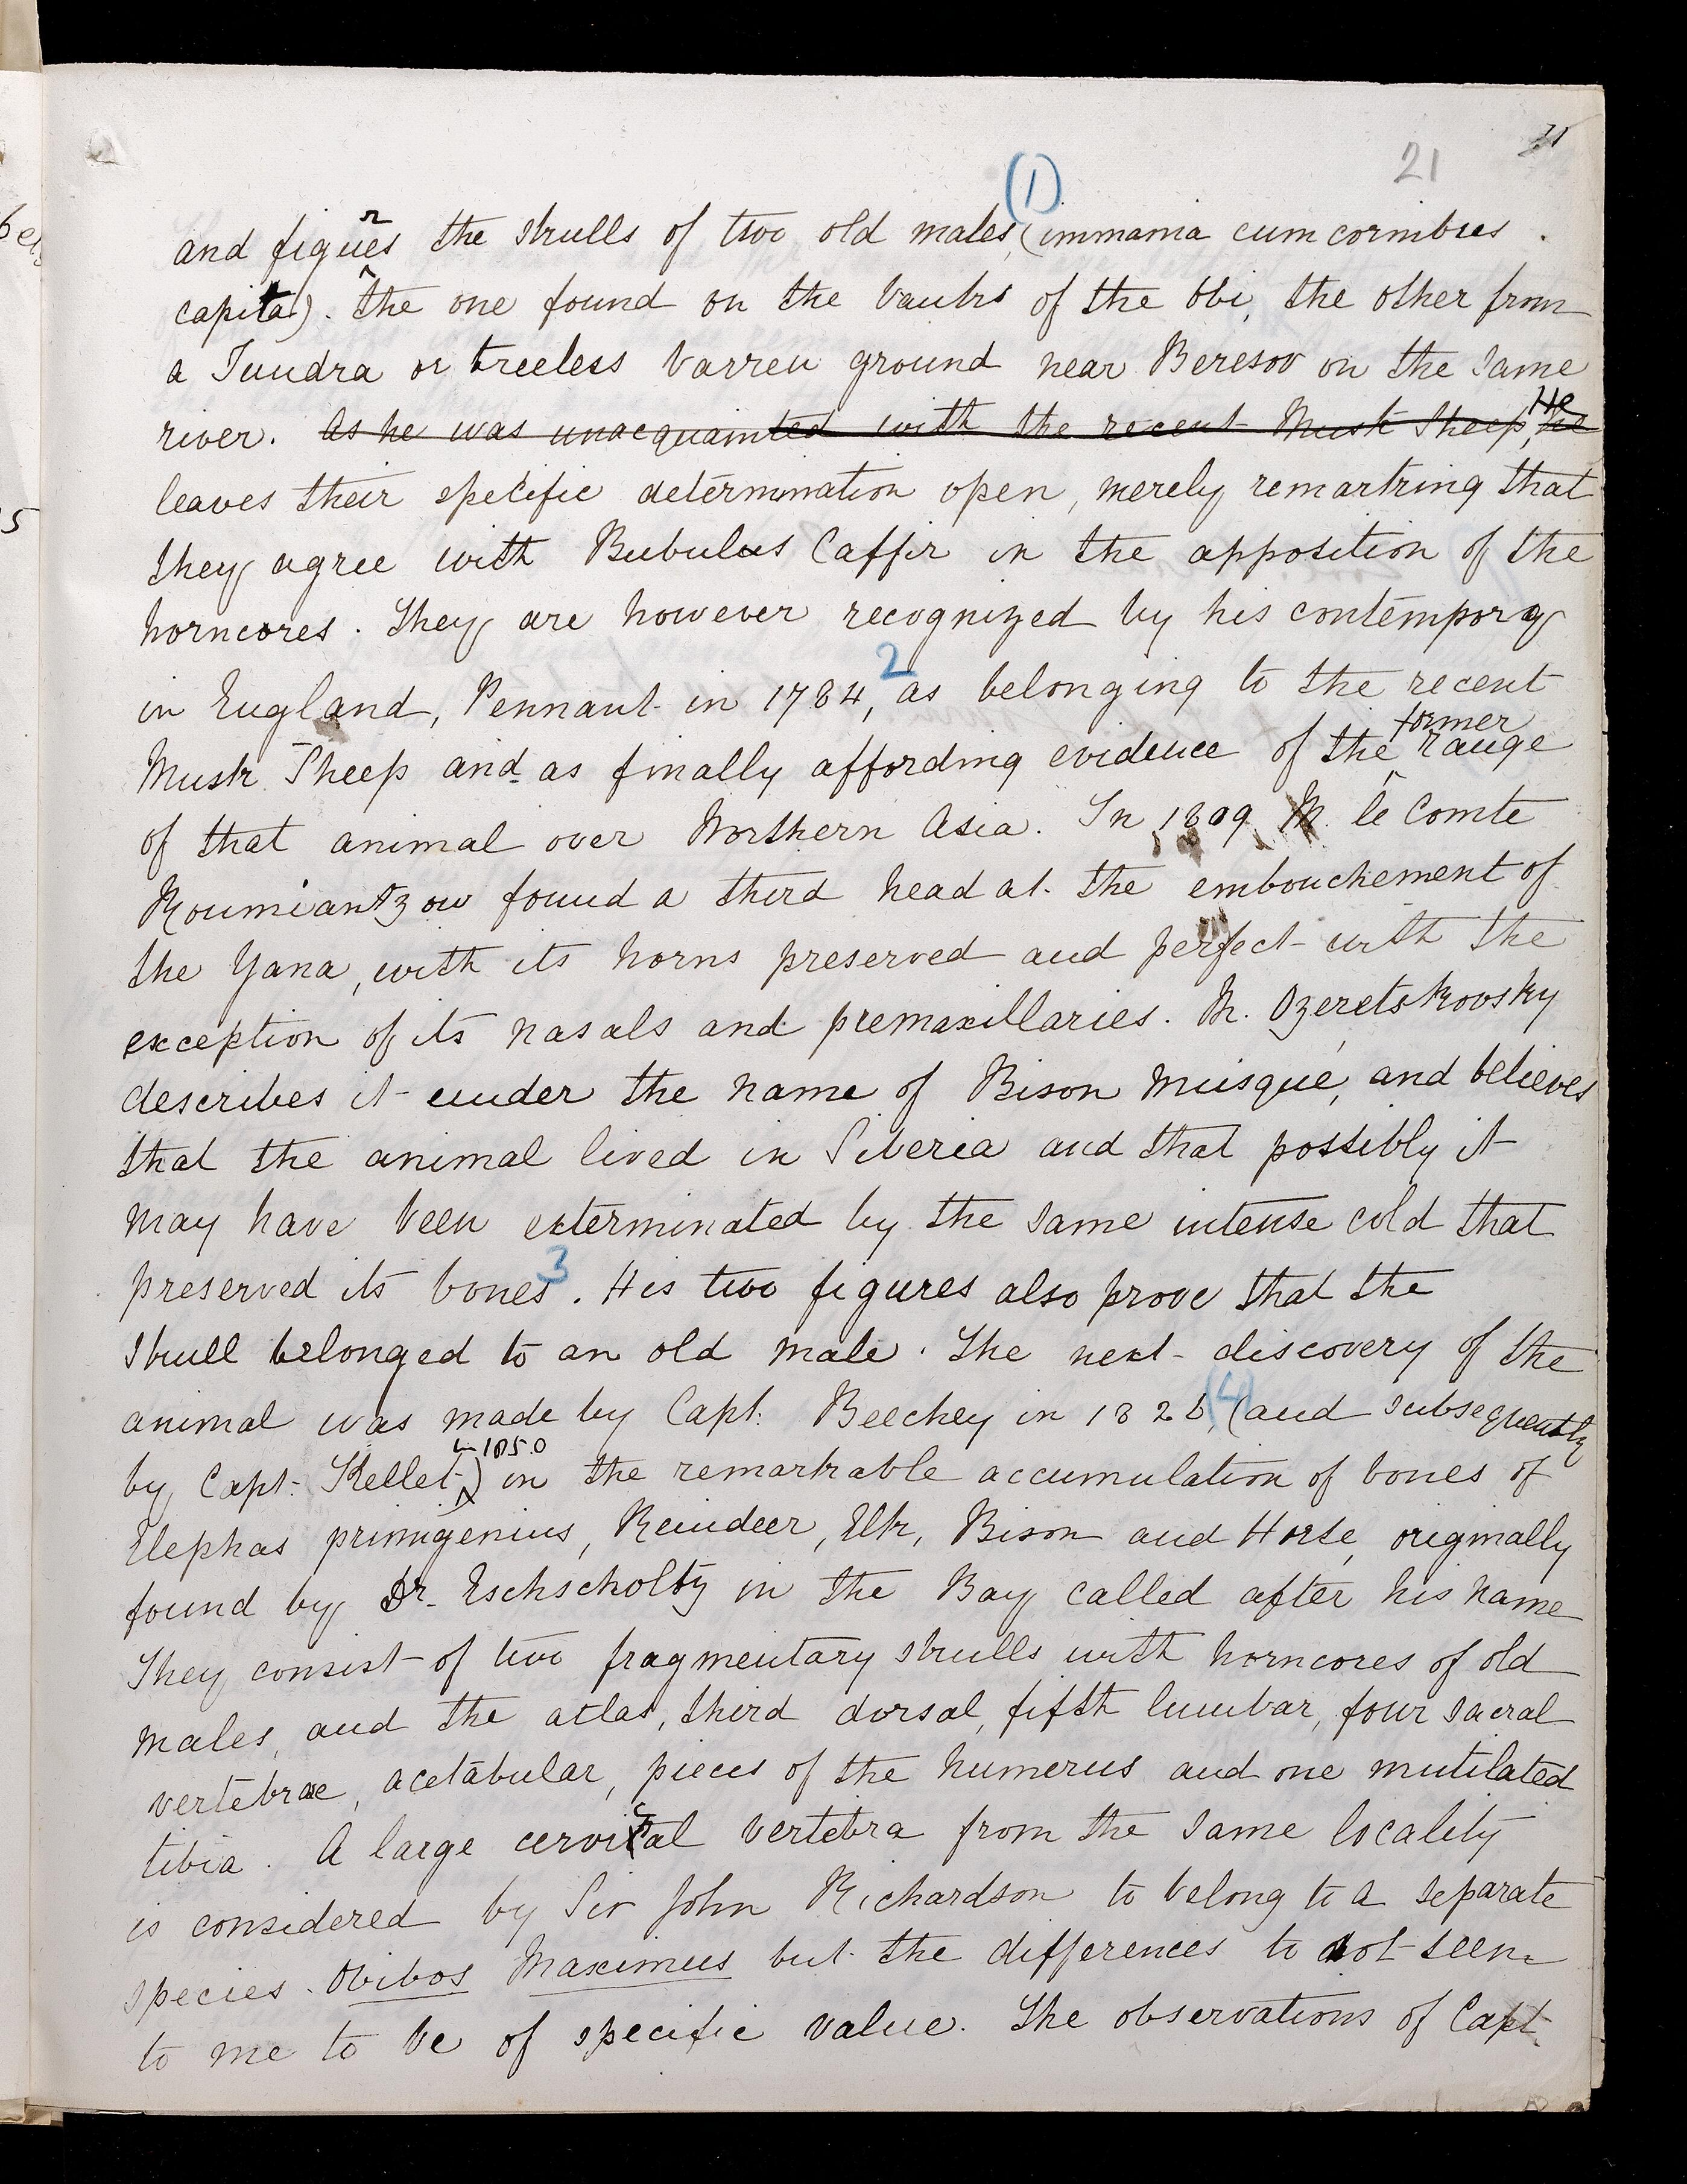 21
31
(1)
and figures the skulls of two old males, (immania cum cornibus
capita). The one found on the banks of the Obi, the other from
a Tundra or treeless barren ground near Beresov on the same
river. As he was unacquainted with the recent Musk Sheep, he He
leaves their specific determination open, merely remarking that
they agree with Bubulus Caffir in the apposition of the
horncores. They are however recognized by his contempory
in England, Pennant in 1784, 2 as belonging to the recent
Musk Sheep and as finally affording evidence of the former range
of that animal over Northern Asia. In 1809 M. le Comte
Roumiantzow found a third head at the embouchement of
the Yana, with its horns preserved and perfect with the
exception of its nasals and premaxillaries. M. Ozeretskovsky
describes it under the name of Bison Musqué, and believes
that the animal lived in Siberia and that possibly it
may have been exterminated by the same intense cold that
preserved its bones 3. His two figures also prove that the
skull belonged to an old male. The next discovery of the
animal was made by Capt. Beechey in 1826, (4) (and subsequently
by Capt. Kellet in 1850) in the remarkable accumulation of bones of
Elephas primigenius, Reindeer, Elk, Bison and Horse, originally
found by Dr. Eschscholtz in the Bay called after his name
They consist of two fragmentary skulls with horncores of old
males, and the atlas, third dorsal, fifth lumbar, four sacral
vertebrae, acetabular, pieces of the humerus and one mutilated
tibia. A large cervical vertebra from the same locality
is considered by Sir John Richardson to belong to a separate
species. Ovibos Maximus but the differences to not seem
to me to be of specific value. The observations of Capt